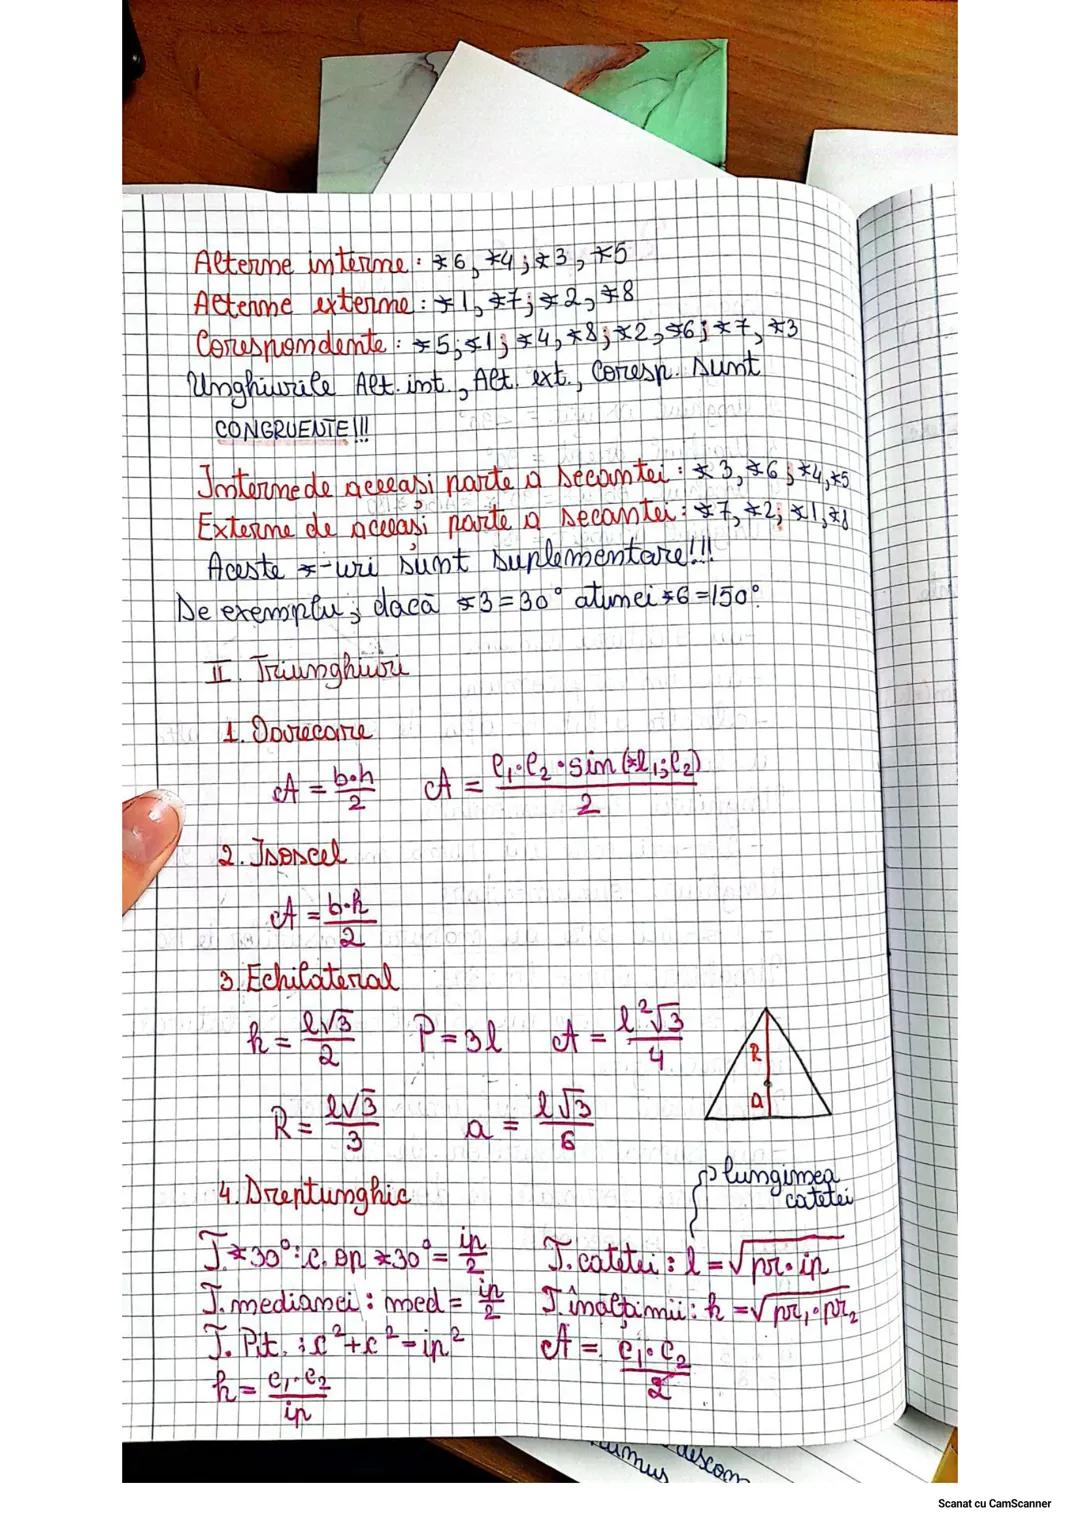 Alterne interne: ∢6, ∢4; ∢3, ∢5
Alterne externe: ∢1, ∢7; ∢2, ∢8
Corespondente: ∢5, ∢1; ∢4, ∢8; ∢2, ∢6; ∢7, ∢3
Unghiurile Alt. int., Alt. ext., Coresp. sunt
CONGRUENTE!!!
Interne de aceeași parte a secantei: ∢3, ∢6; ∢4, ∢5
Externe de aceeași parte a secantei: ∢7, ∢2; ∢1, ∢8
Aceste ∢-uri sunt suplementare!!!
De exemplu; dacă ∢3=30° atunci ∢6=150°.
II. Triunghiuri
1. Oarecare
A = b·h/2 A = l₁·l₂·sin(∢l₁;l₂)/2
2. Isoscel
A = b·h/2
3. Echilateral
h = l√3/2 P = 3l A = l²√3/4
R
R = l√3/3 a = l√3/6
a
4. Dreptunghic
lungimea
catetei
T.∢30°: c. op ∢30° = ip/2 T. catetei: l = √pr·ip
T. medianei: med = ip/2 T. înălțimii: h = √pr₁·pr₂
T. Pit.: c²+c²=ip² A = c₁·c₂/2
h = c₁·c₂/ip
descom
Scanat cu CamScanner